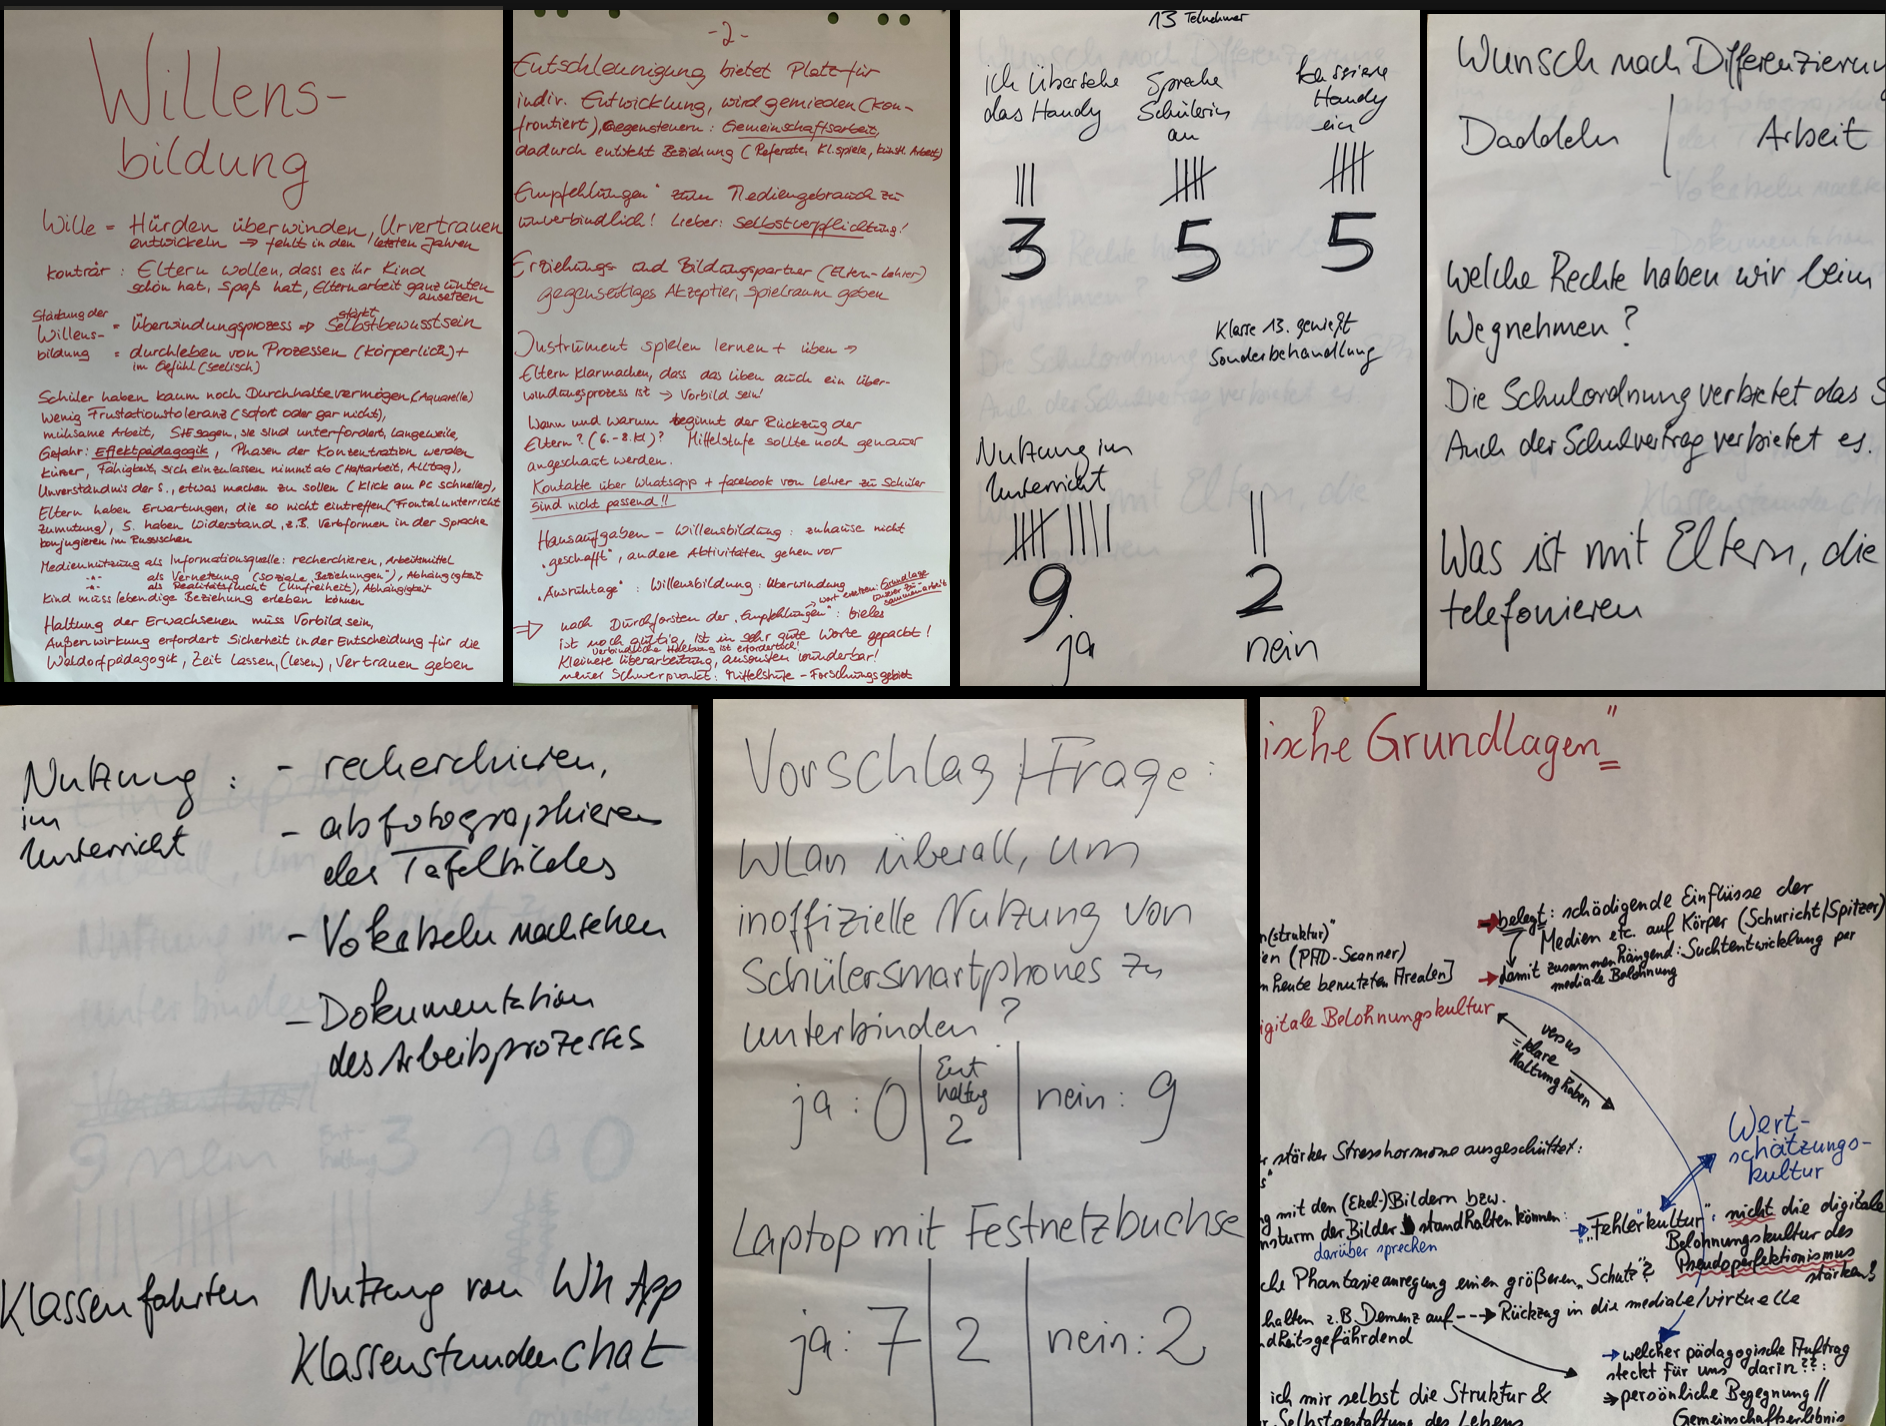 Willens-
bildung
Wille = Hürden überwinden, Urvertrauen
entwickeln → fehlt in den letzten Jahren
konträr : Eltern wollen, dass es ihr Kind
schön hat, Spaß hat, Elternarbeit ganz unten
ansetzen
Stärkung der
Willens-
bildung
= Überwindungsprozess → stärkt Selbstbewusstsein
= durchleben von Prozessen (körperlich) +
im Gefühl (seelisch)
Schüler haben kaum noch Durchhaltevermögen (Aquarelle)
wenig Frustrationstoleranz (sofort oder gar nicht),
mühsame Arbeit, SIE sagen, sie sind unterfordert, Langeweile,
Gefahr: Effektpädagogik, Phasen der Konzentration werden
kürzer, Fähigkeit, sich einzulassen nimmt ab (Heftarbeit, Alltag),
Unverständnis der S., etwas machen zu sollen (Klick am PC schneller),
Eltern haben Erwartungen, die so nicht eintreffen (Frontalunterricht
Zumutung), S. haben Widerstand, z.B. Verbformen in der Sprache
konjugieren im Russischen
Mediennutzung als Informationsquelle: recherchieren, Arbeitsmittel
-"- als Vernetzung (soziale Beziehungen"), Abhängigkeit
-"- als Realitätsflucht (Unfreiheit), Abhängigkeit
Kind muss lebendige Beziehung erleben können
Haltung der Erwachsenen muss Vorbild sein,
Außenwirkung erfordert Sicherheit in der Entscheidung für die
Waldorfpädagogik, Zeit lassen, (lesen), Vertrauen geben
-2-
Entschleunigung bietet Platz für
indiv. Entwicklung, wird gemieden (kon-
frontiert), Gegensteuern: Gemeinschaftsarbeit,
dadurch entsteht Beziehung (Referate, Kl.spiele, künstl. Arbeit)
Empfehlungen" zum Mediengebrauch zu
unverbindlich! Lieber: Selbstverpflichtung!
Erziehungs- und Bildungspartner (Eltern-Lehrer)
gegenseitiges Akzeptier, Spielraum geben
Instrument spielen lernen + üben ⇒
Eltern klarmachen, dass das üben auch ein Über-
windungsprozess ist → Vorbild sein!
Wann und warum beginnt der Rückzug der
Eltern? (6.-8.Kl)? Mittelstufe sollte noch genauer
angeschaut werden.
Kontakte über Whatsapp + facebook von Lehrer zu Schüler
sind nicht passend!!
Hausaufgaben – Willensbildung: zuhause nicht
„geschafft", andere Aktivitäten gehen vor
„Ausrühtage" : Willensbildung: Überwindung
→ Wort ersetzen: Grundlage
unserer Zu-
sammenarbeit
⇒ nach Durchforsten der „Empfehlungen" : vieles
ist noch gültig, ist in sehr gute Worte gepackt!
verbindliche Haltung ist erforderlich!
Kleinere Überarbeitung, ansonsten wunderbar!
neuer Schwerpunkt: Mittelstufe – Forschungsgebiet
13 Teilnehmer
ich übersehe
das Handy
Spreche
Schülerin
an
kassiere
Handy
ein
3 5 5
Klasse 13. genießt
Sonderbehandlung
Nutzung im
Unterricht
9 2
ja nein
Wunsch nach Differenzierun
Daddeln | Arbeit
Welche Rechte haben wir beim
Wegnehmen?
Die Schulordnung verbietet das S
Auch der Schulvertrag verbietet es.
Was ist mit Eltern, die
telefonieren
Nutzung :
im
Unterricht
- recherchieren,
- abfotographieren
des Tafelbildes
- Vokabeln nachsehen
- Dokumentation
des Arbeitsprozesses
Klassenfahrten Nutzung von WhApp
Klassenstundenchat
Vorschlag / Frage:
WLan überall, um
inoffizielle Nutzung von
Schülersmartphones zu
unterbinden?
ja : 0 | Ent
haltng
2 | nein: 9
Laptop mit Festnetzbuchse
ja: 7 | 2 | nein: 2
ische Grundlagen"
n(struktur)"
en (PAD-Scanner)
n heute benutzten Arealen]
igitale Belohnungskultur
→ belegt: schädigende Einflüsse der
Medien etc. auf Körper (Schuricht/Spitzer)
→ damit zusammenhängend: Suchtentwicklung per
mediale Belohnung
versus
= klare
Haltung haben
Wert-
schätzungs-
kultur
r stärker Stresshormone ausgeschüttet:
s"
g mit den (Ekel-)Bildern bzw.
nsturm der Bilder standhalten können:
darüber sprechen
→ „Fehlerkultur": nicht die digitale
Belohnungskultur des
Pseudoperfektionismus
stärken?
che Phantasieanregung einen größeren „Schutz"?
halten z.B. Demenz auf --→ Rückzug in die mediale/virtuelle
ndheitsgefährdend
→ welcher pädagogische Auftrag
steckt für uns darin??:
⇒ persönliche Begegnung //
Gemeinschaftserlebnis
ich mir selbst die Struktur &
r Selbstgestaltung des Lebens